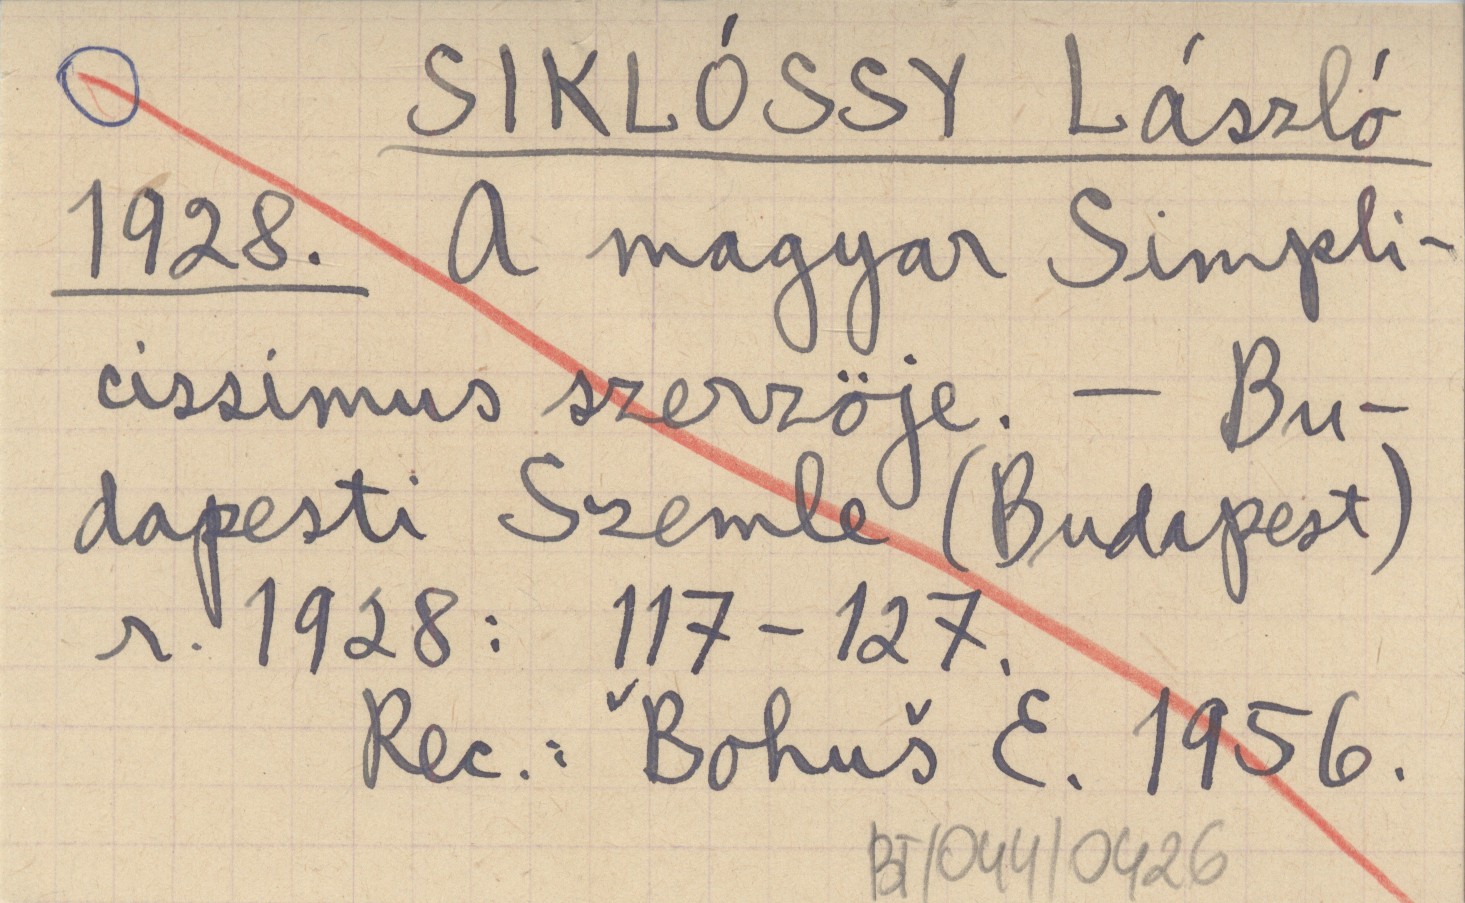 SIKLÓSSY László
1928. A magyar Simpli-
cissimus szerzöje. — Bu-
dapesti Szemle (Budapest)
r. 1928: 117-127.
Rec.: ˇBohuš E. 1956.
BT/044/0426